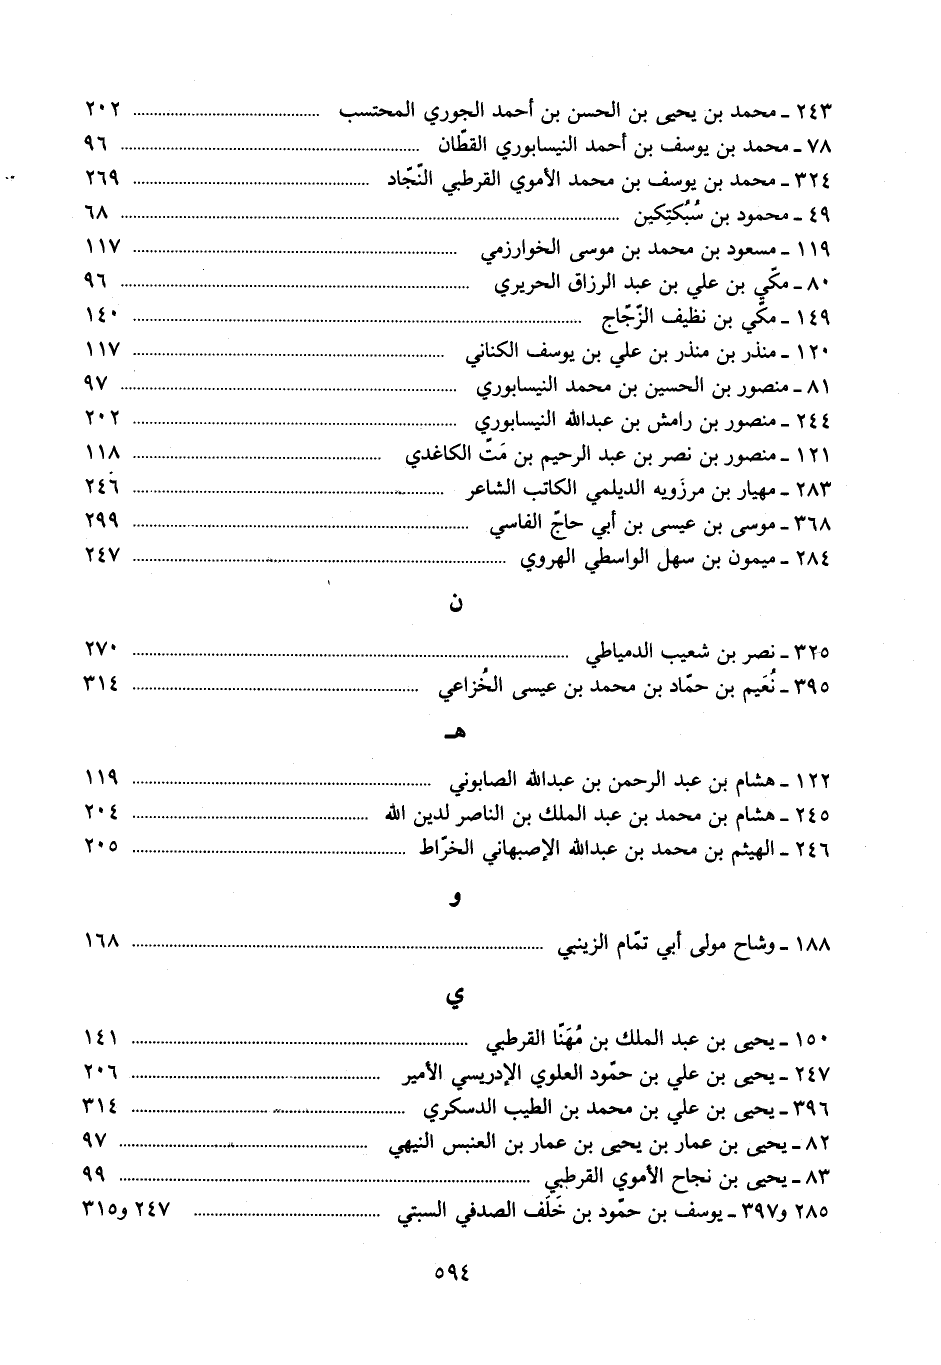 ٢٤٣ ـ محمد بن يحيى بن الحسن بن أحمد الجوري المحتسب ........ ٢٠٢
٧٨ ـ محمد بن يوسف بن أحمد النيسابوري القطّان ........ ٩٦
٣٢٤ ـ محمد بن يوسف بن محمد الأموي القرطبي النّجّاد ........ ٢٦٩
٤٩ ـ محمود بن سُبُكتِكين ........ ٦٨
١١٩ ـ مسعود بن محمد بن موسى الخوارزمي ........ ١١٧
٨٠ ـ مكّي بن علي بن عبد الرزاق الحريري ........ ٩٦
١٤٩ ـ مكّي بن نظيف الزّجّاج ........ ١٤٠
١٢٠ ـ منذر بن منذر بن علي بن يوسف الكناني ........ ١١٧
٨١ ـ منصور بن الحسين بن محمد النيسابوري ........ ٩٧
٢٤٤ ـ منصور بن رامش بن عبدالله النيسابوري ........ ٢٠٢
١٢١ ـ منصور بن نصر بن عبد الرحيم بن مَتّ الكاغدي ........ ١١٨
٢٨٣ ـ مهيار بن مرزَويه الديلمي الكاتب الشاعر ........ ٢٤٦
٣٦٨ ـ موسى بن عيسى بن أبي حاجّ الفاسي ........ ٢٩٩
٢٨٤ ـ ميمون بن سهل الواسطي الهروي ........ ٢٤٧
ن
٣٢٥ ـ نصر بن شعيب الدمياطي ........ ٢٧٠
٣٩٥ ـ نُعَيم بن حمّاد بن محمد بن عيسى الخُزاعي ........ ٣١٤
هـ
١٢٢ ـ هشام بن عبد الرحمن بن عبدالله الصابوني ........ ١١٩
٢٤٥ ـ هشام بن محمد بن عبد الملك بن الناصر لدين الله ........ ٢٠٤
٢٤٦ ـ الهيثم بن محمد بن عبدالله الإصبهاني الخرّاط ........ ٢٠٥
و
١٨٨ ـ وشاح مولى أبي تمّام الزينبي ........ ١٦٨
ي
١٥٠ ـ يحيى بن عبد الملك بن مُهَنّا القرطبي ........ ١٤١
٢٤٧ ـ يحيى بن علي بن حمّود العلوي الإدريسي الأمير ........ ٢٠٦
٣٩٦ ـ يحيى بن علي بن محمد بن الطيب الدسكري ........ ٣١٤
٨٢ ـ يحيى بن عمار بن يحيى بن عمار بن العنبس النيهي ........ ٩٧
٨٣ ـ يحيى بن نجاح الأموي القرطبي ........ ٩٩
٢٨٥ و٣٩٧ ـ يوسف بن حمّود بن خَلَف الصدفي السبتي ........ ٢٤٧ و٣١٥
٥٩٤